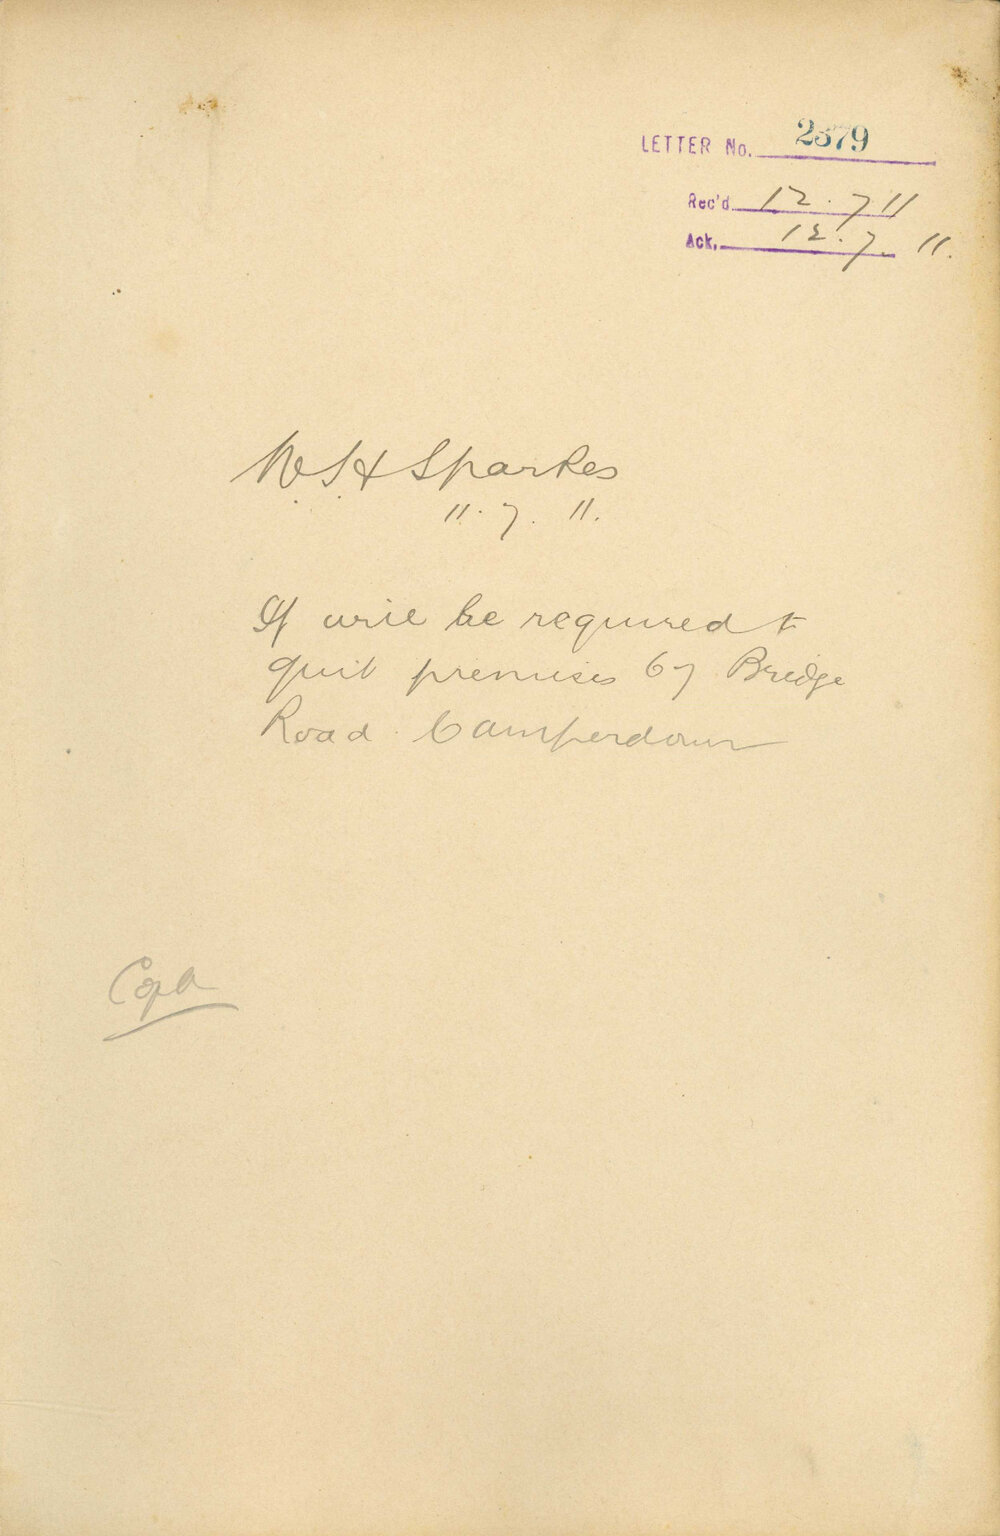 LETTER No. 2379
Rec'd 12.7 11
Ack. 12.7. 11.
W H Sparkes
11.7.11.
If will be required to
quit premises 67 Bridge
Road Camperdown